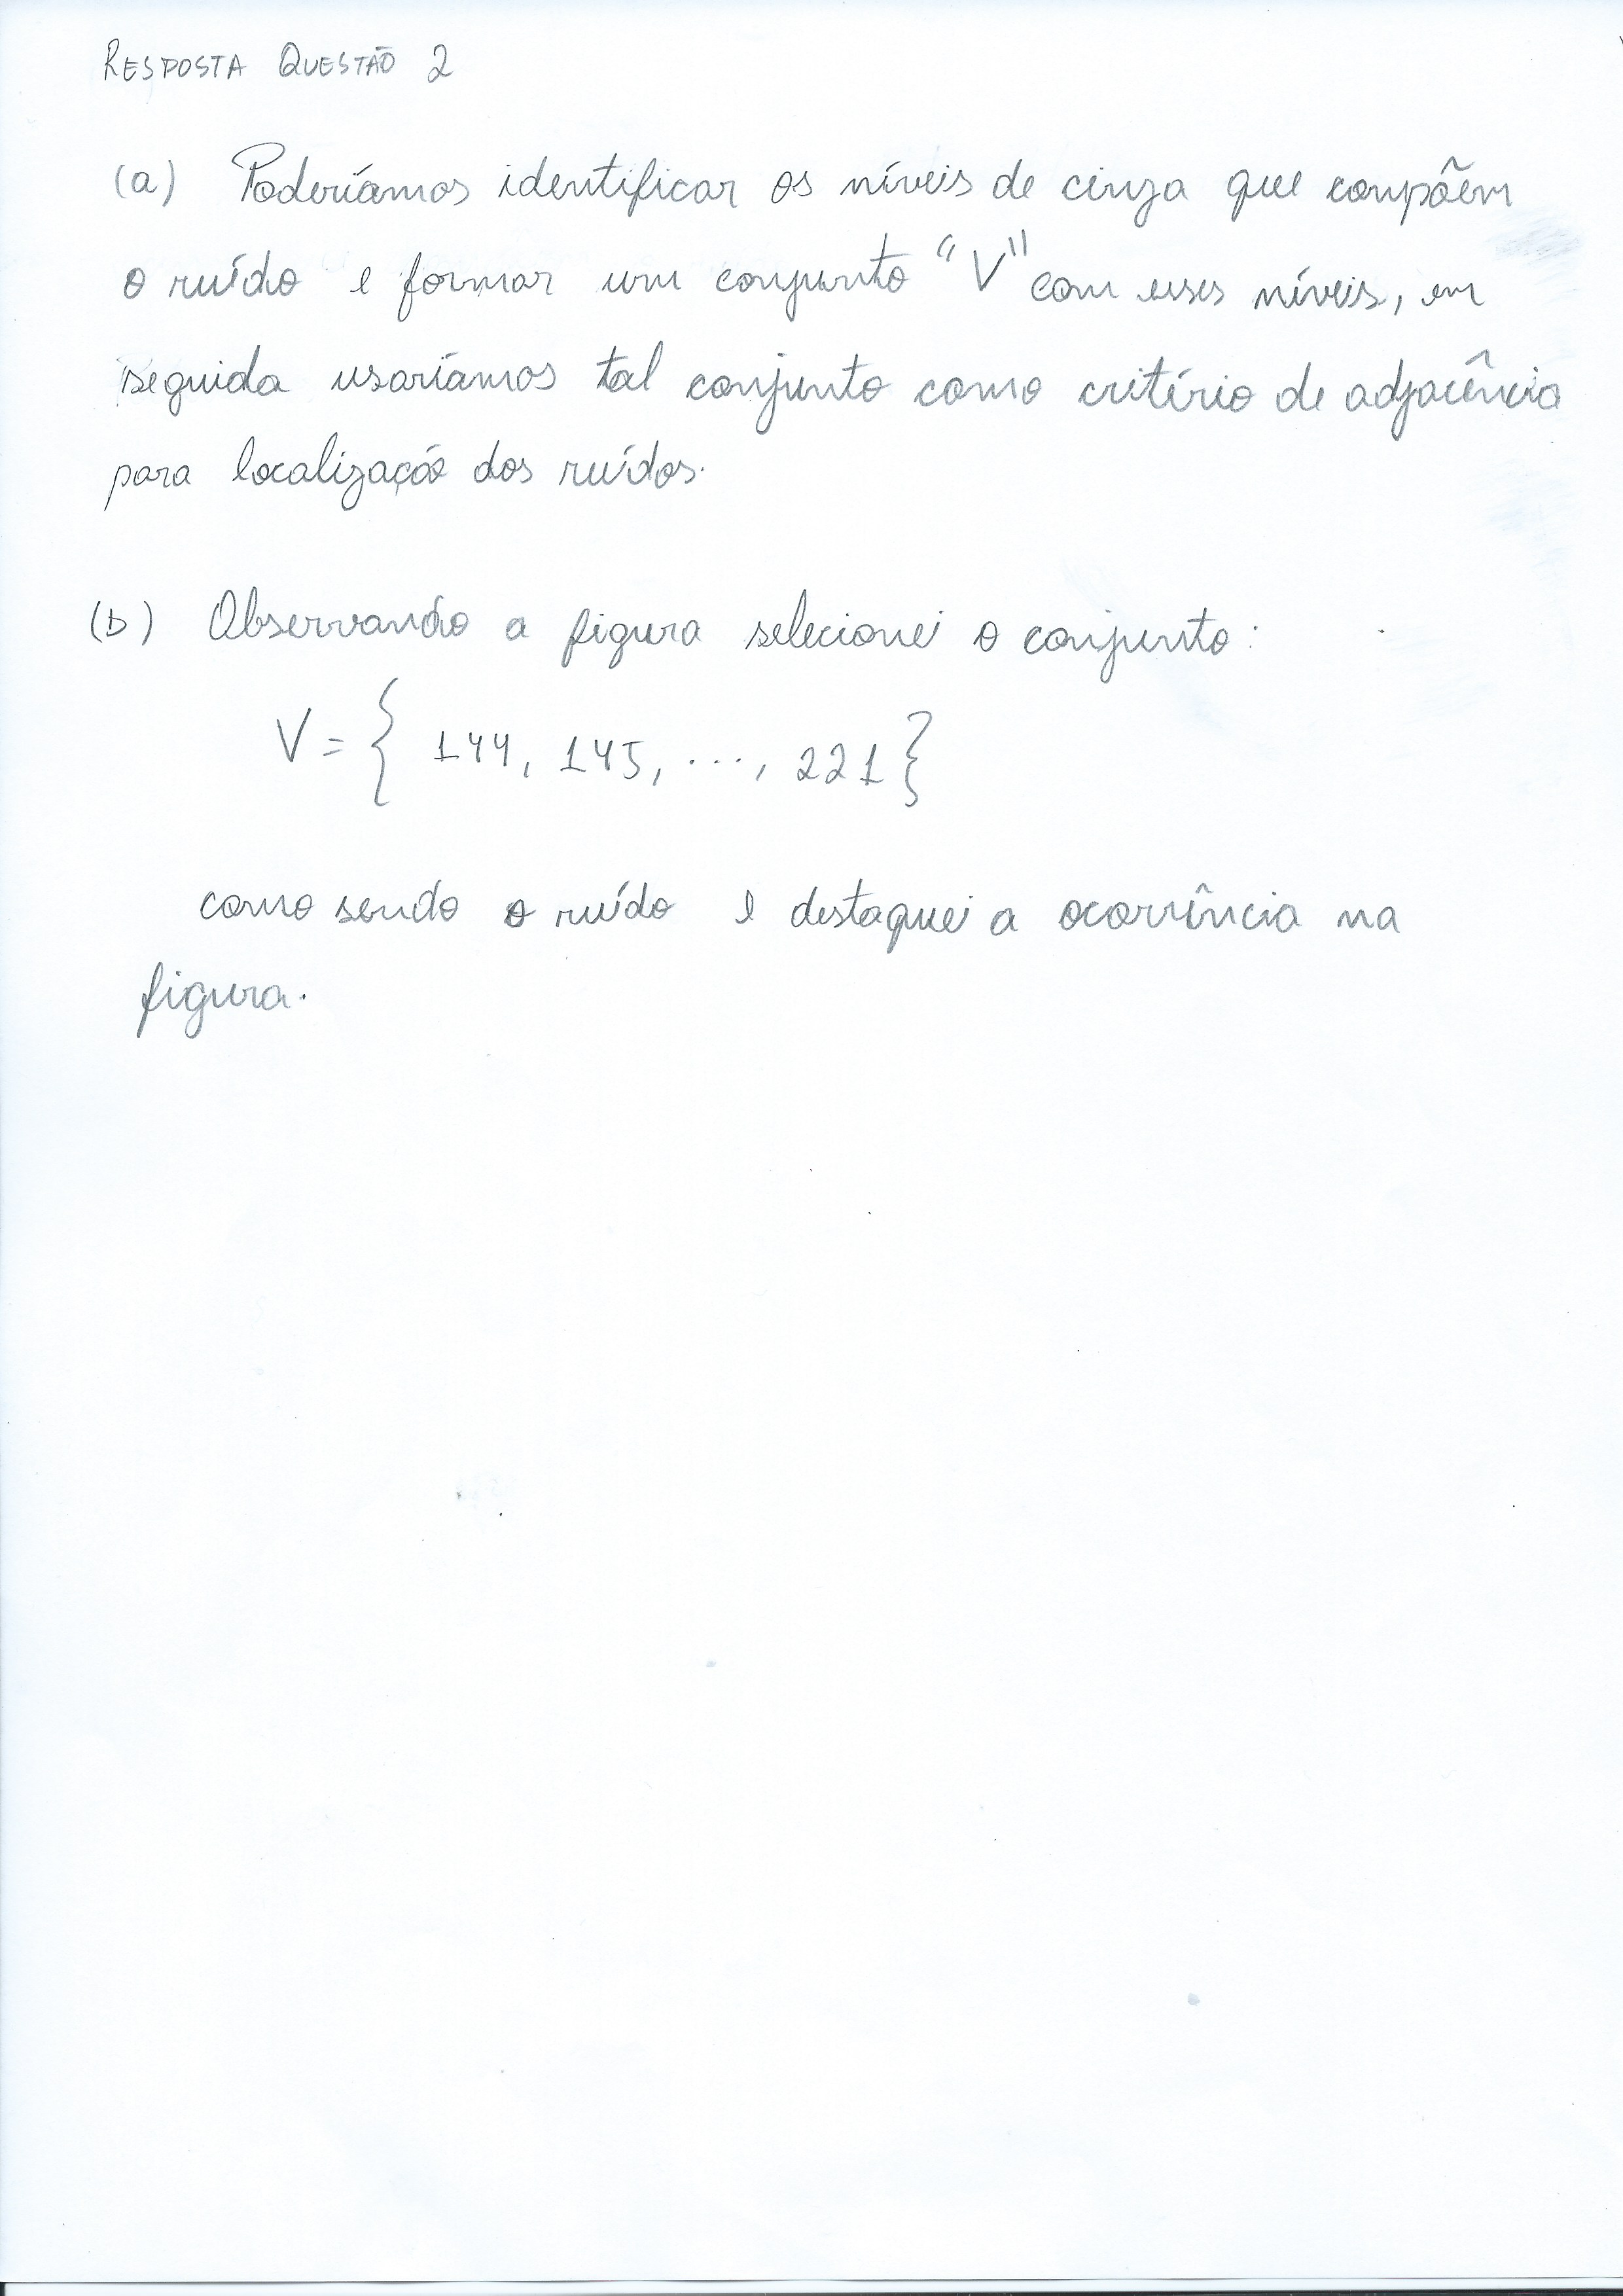 RESPOSTA QUESTÃO 2
(a) Poderíamos identificar os níveis de cinza que compõem
o ruído e formar um conjunto "V" com esses níveis, em
seguida usaríamos tal conjunto como critério de adjacência
para localização dos ruídos.
(b) Observando a figura selecionei o conjunto:
V = { 144, 145, ..., 221}
como sendo o ruído e destaquei a ocorrência na
figura.